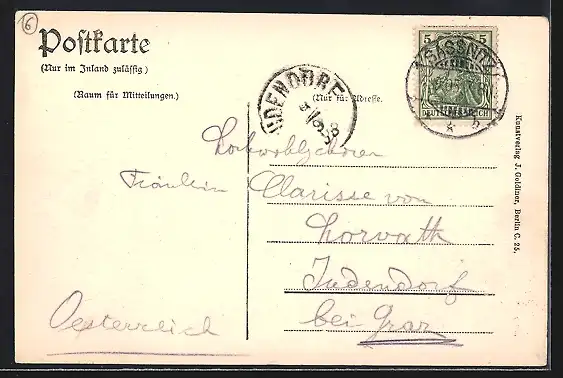 6
Postkarte
(Nur im Inland zulässig)
(Raum für Mitteilungen.)
(Nur für Adresse.
5 5
DEUTSCHES REICH
SASSNITZ
JUDENDORF
Hochwohlgeboren
Fräulein Clarisse von
Horvath
Judendorf
bei Graz
Oesterreich
Kunstverlag J. Goldiner, Berlin C. 25.